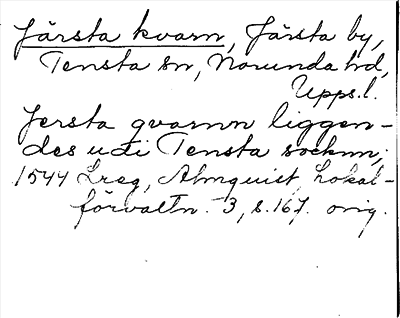 Järsta kvarn, Järsta by,
Tensta sn, Norunda hd,
Upps. l.
Jersta qvarnn liggen-
des uti Tensta socknn;
1544 Lreg, Almquist, Lokal-
förvaltn. 3, s. 167. orig.